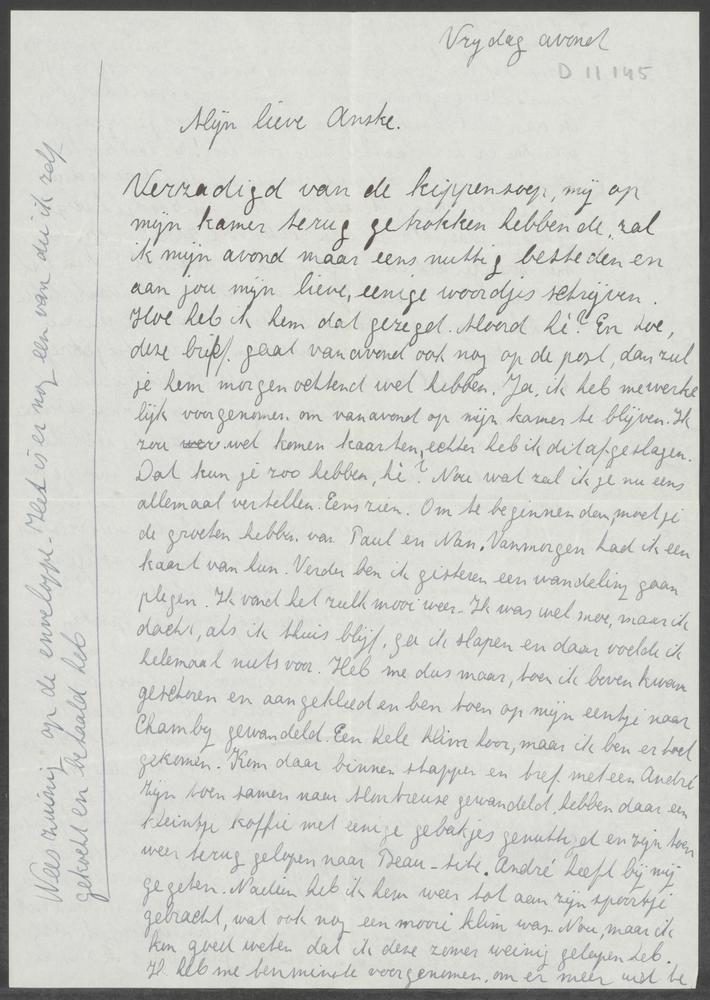 Vrydag avond
D 11 145
Mijn lieve Anske.
Verzadigd van de kippensoep, mij op
mijn kamer terug getrokken hebbende, zal
ik mijn avond maar eens nuttig besteden en
aan jou mijn lieve, eenige woordjes schrijven.
Hoe heb ik hem dat gezegd. Moord hè? En toe,
deze brief gaat vanavond ook nog op de post, dan zul
je hem morgen ochtend wel hebben. Ja, ik heb me werke
lijk voorgenomen om vanavond op mijn kamer te blijven. Ik
zou wel komen kaarten, echter heb ik dit afgeslagen.
Dat kun je zoo hebben, hè? Nou wat zal ik je nu eens
allemaal vertellen. Eens zien. Om te beginnen dan, moet je
de groeten hebben van Paul en Nan. Vanmorgen had ik een
kaart van hun. Verder ben ik gisteren een wandeling gaan
plegen. Ik vond het zulk mooi weer. Ik was wel moe, maar ik
dacht, als ik thuis blijf, ga ik slapen en daar voelde ik
helemaal niets voor. Heb me dus maar, toen ik boven kwam
geschoren en aangekleed en ben toen op mijn eentje naar
Chamby gewandeld. Een hele klim hoor, maar ik ben er toch
gekomen. Kom daar binnen stappen en tref meteen André
Zijn toen samen naar Montreuse gewandeld, hebben daar een
kleintje koffie met eenige gebakjes genuttigd en zijn toen
weer terug gelopen naar Beau-site. André heeft bij mij
gegeten. Nadien heb ik hem weer tot aan zijn spoortje
gebracht, wat ook nog een mooie klim was. Nou, maar ik
kon goed weten dat ik deze zomer weinig gelopen heb.
Ik heb me tenminste voorgenomen, om er meer uit te
Wees zuinig op de enveloppe. Het is er nog een van die ik zelf
gekocht en betaald heb